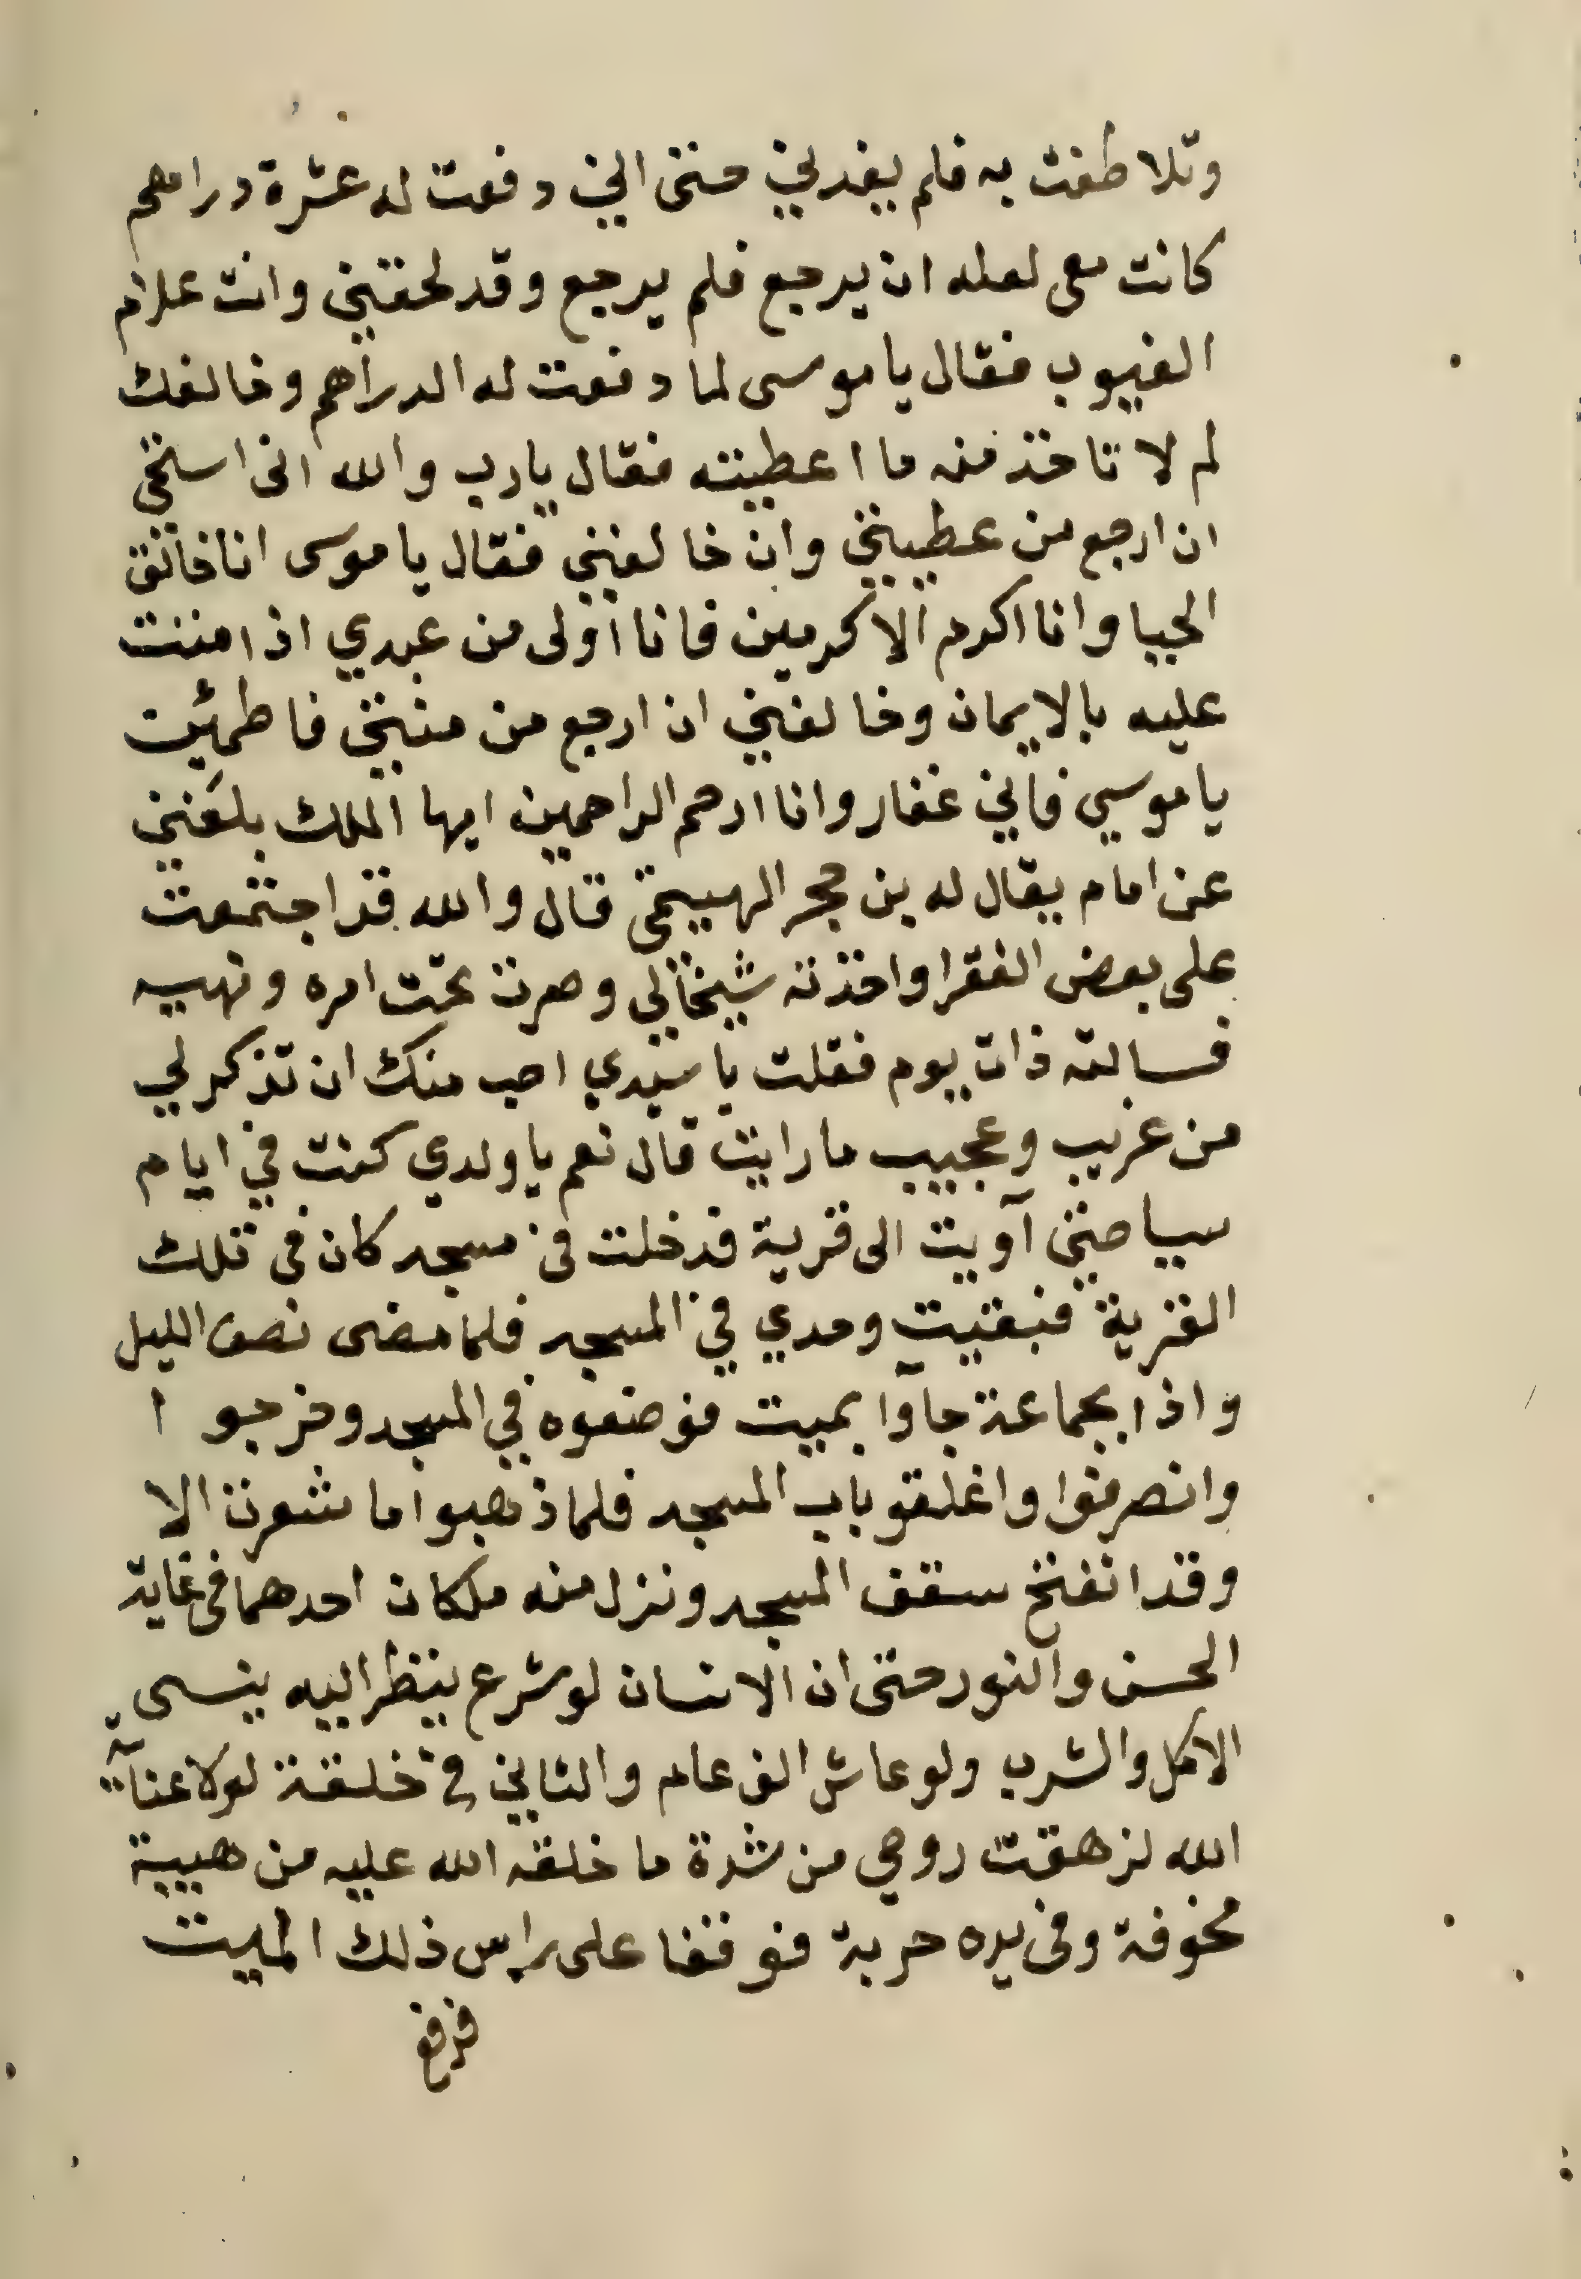 وتلاطفت به فلم يفدني حتى اني دفعت له عشرة دراهم
كانت معى لعله ان يرجع فلم يرجع وقد لحقتني وانت علام
الغيوب فقال يا موسى لما دفعت له الدراهم وخالفك
لم لا تاخذ منه ما اعطيته فقال يارب والله انى استحي
ان ارجع من عطيتي وان خالفني فقال يا موسى انا خالق
الحيا وانا اكرم الاكرمين فانا أولى من عبدي اذا مننت
عليه بالايمان وخالفني ان ارجع من منتي فاطمئت
يا موسي فاني غفار وانا ارحم الراحمين ايها الملك بلغني
عن امام يقال له بن حجر الهيتمى قال والله قد اجتمعت
على بعض الفقرا واخذته شيخا لي وصرت تحت امره ونهيه
فسالته ذات يوم فقلت يا سيدي احب منك ان تذكر لي
من غريب وعجيب ما رايت قال نعم يا ولدي كنت في ايام
سياحتي آويت الى قرية فدخلت فى مسجد كان فى تلك
القرية فبقيت وحدي في المسجد فلما مضى نصف الليل
واذا بجماعة جاآوا بميت فوضعوه في المسجد وخرجوا
وانصرفوا واغلقو باب المسجد فلما ذهبوا ما شعرت الا
وقد انفتح سقف المسجد ونزل منه ملكان احدهما فى غاية
الحسن والنور حتى ان الانسان لو شرع ينظر اليه ينسى
الاكل والشرب ولو عاش الف عام والثاني في خلقة لولا عناية
الله لزهقت روحي من شدة ما خلقه الله عليه من هيبة
مخوفة وفى يده حربة فوقفا على راس ذلك الميت